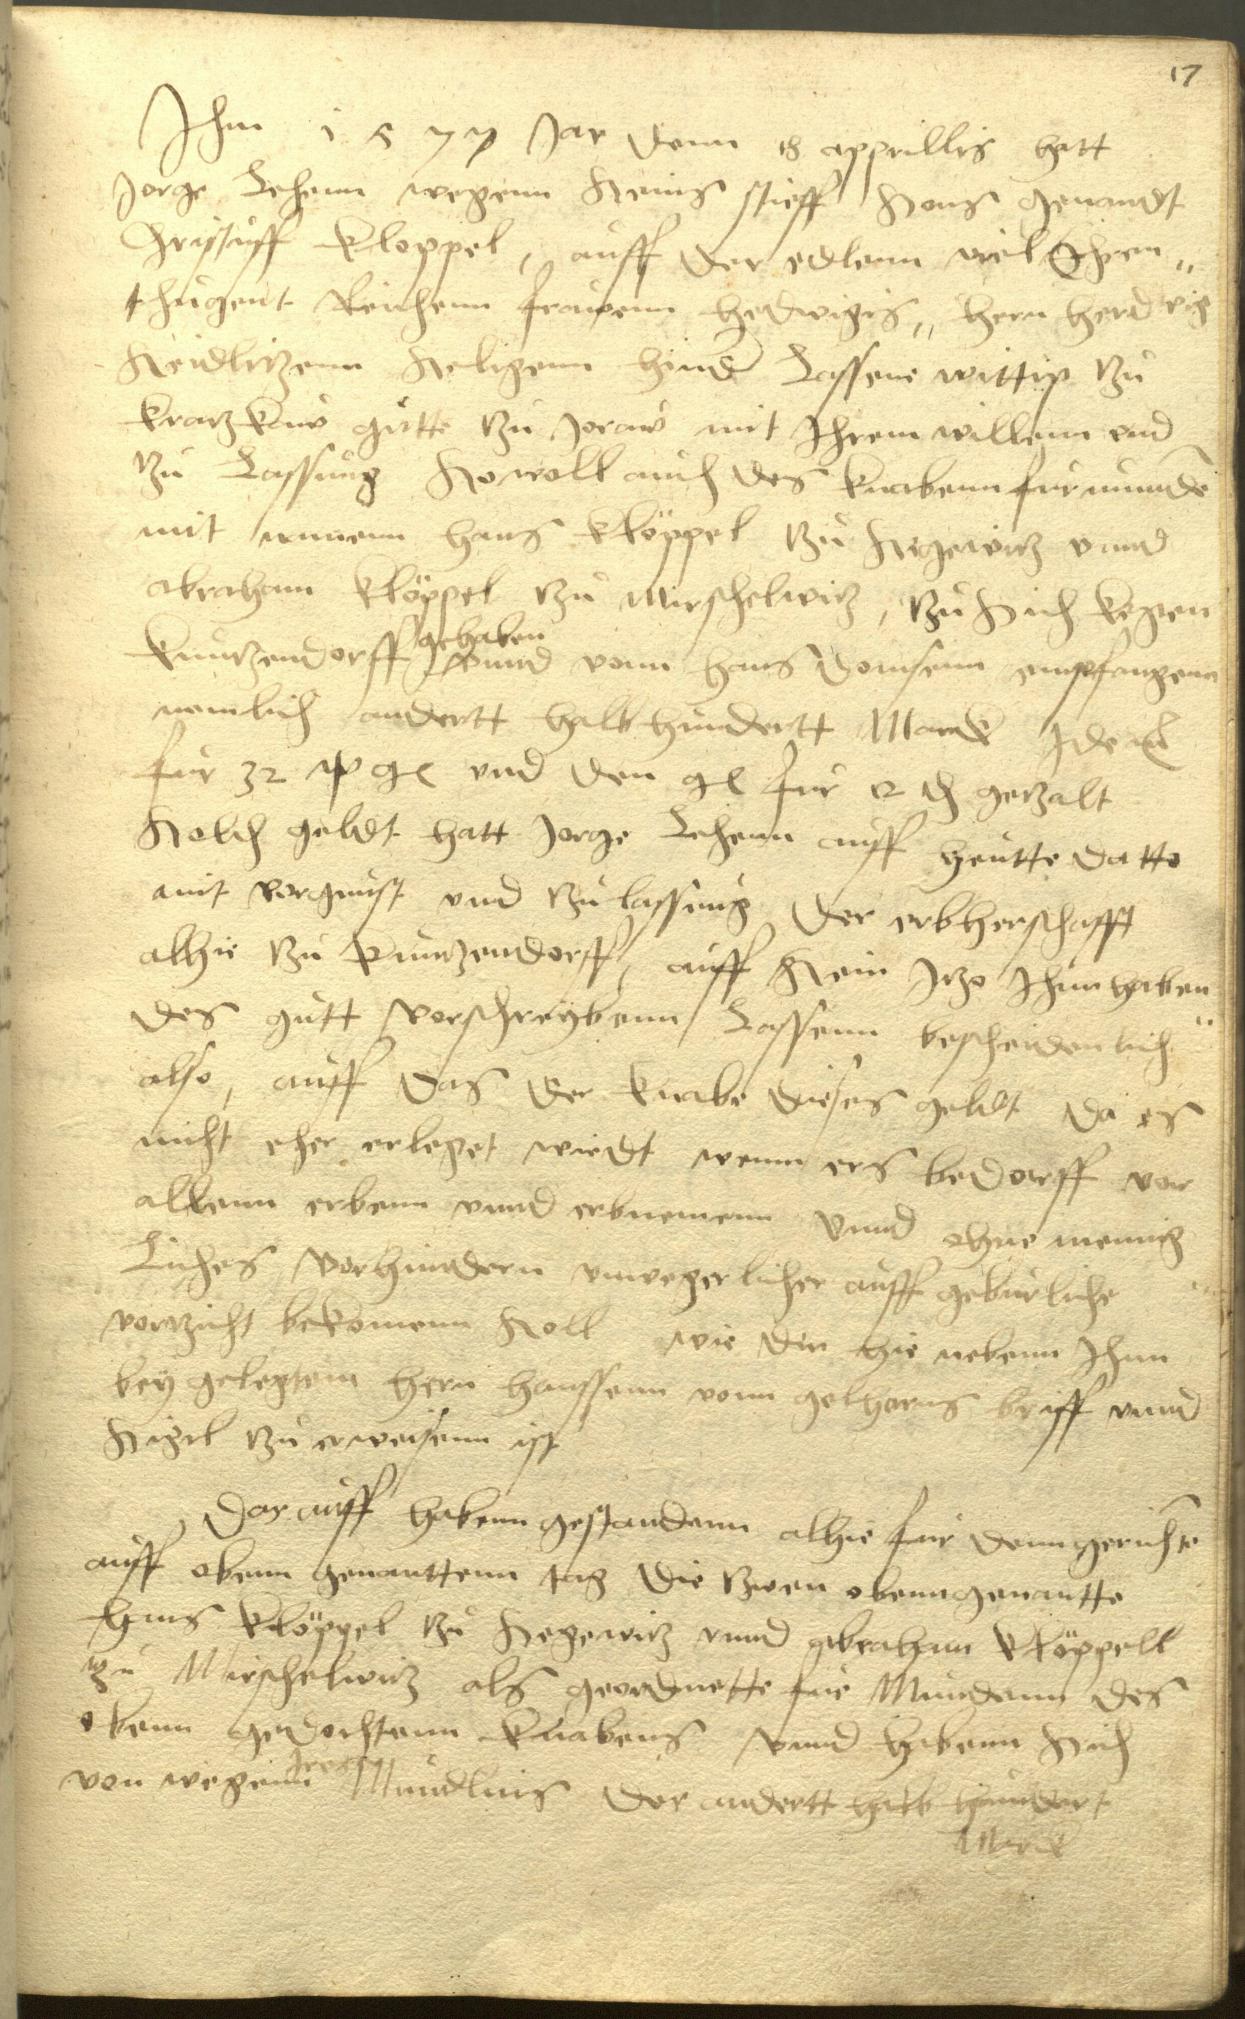 17
Ihm 1577 Jar denn 18 apprillis hatt
Jorge Lehenn wegenn Seines stieff Sons genandt
Christuff Kloppel, auff der edlenn viel Ehren„
thugent Reichenn frawenn hedwigis„ hern herdwig
Seidlitzenn Seligenn hinder Lassene wittip zu
kratzkaw gutte zu Joraw mit Ihrem willenn vnd
zu Lassung Sowoll auch des knabenn furmunde
mit namenn hans Klöppel zu Segewitz vnnd
abraham Klöppel zu Mirschelwitz, zu Sich kegen
Kuntzendorff gehaben vnnd vonn hans Domsenn empfangenn
nemlich andertt halb hundertt Marck Jde
fur 32 gl vnd den gl fur 12 d getzalt
Solch geldt hatt Jorge Lehenn auff heutte datto
mit vorgunst vnd zulassung der erbherschafft
alhie zu Kuntzendorff, auff Sein Jtzo Ihnnhaben„
des gutt Vorschreybenn Lassenn bescheidenlich
also, auff das der knabe dieses geldt da es
nicht eher erleget wirdt wenn ers bedorff vor
allenn erbenn vnnd erbnemenn Vnnd ohne mennig
Liches Vorhindern vnwegerlicher auff geburliche
vortzicht bekomenn Soll wie den hie nebenn Ihnn
bey gelegtem hern hanssenn vonn gelhorns briff vnnd
Sigel zu erweisenn ist
Darauff habenn gestandenn alhie fur denn gerichte
auff obenn genanttenn tag die zwen obenngenantte
hans Klöppel zu Segewitz vnnd abraham Klöppell
zu Mirschelwitz als geordnette fur Mundenn des
obenn gedochtenn knabens Vnnd habenn Sich
von wegenn Ires Mundleins der andertt halb hundert
Marck